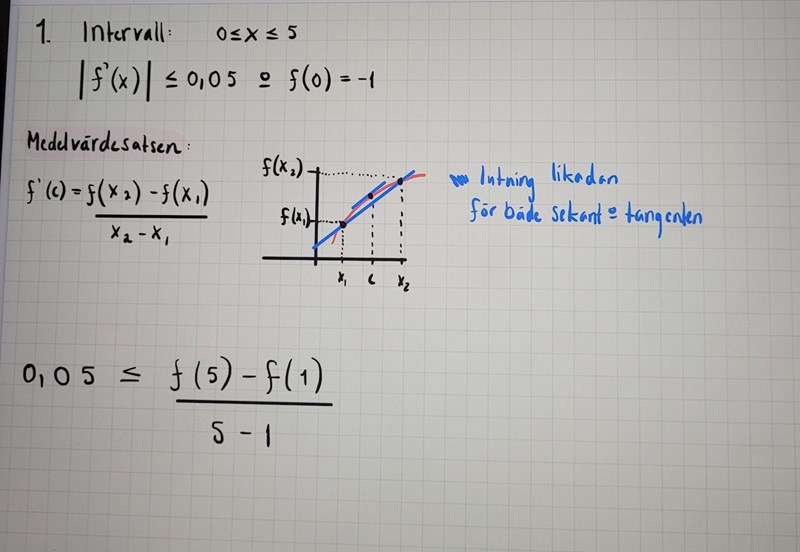 1. Intervall: 0 ≤ x ≤ 5
|f'(x)| ≤ 0,05 o f(0) = -1
Medelvärdesatsen:
f'(c) = f(x2) - f(x1)
x2 - x1
f(x2)
f(x1)
x1 c x2
lutning likadan
för både sekant o tangenten
0,05 ≤ f(5) - f(1)
5 - 1